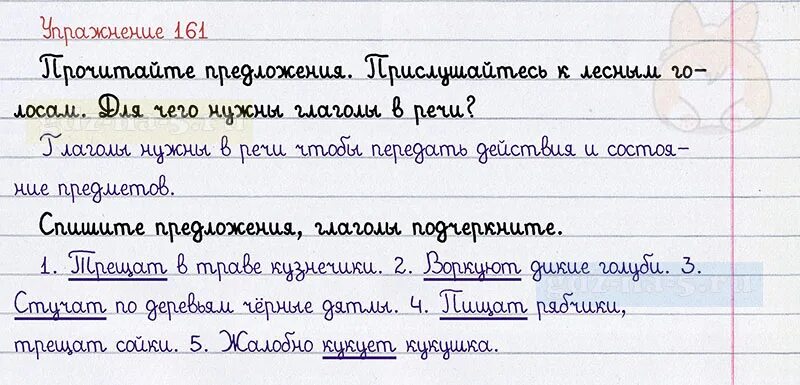 Упражнение 161
Прочитайте предложения. Прислушайтесь к лесным го-
лосам. Для чего нужны глаголы в речи?
Глаголы нужны в речи чтобы передать действия и состоя-
ние предметов.
Спишите предложения, глаголы подчеркните.
1. Трещат в траве кузнечики. 2. Воркуют дикие голуби. 3.
Стучат по деревьям чёрные дятлы. 4. Пищат рябчики,
трещат сойки. 5. Жалобно кукует кукушка.